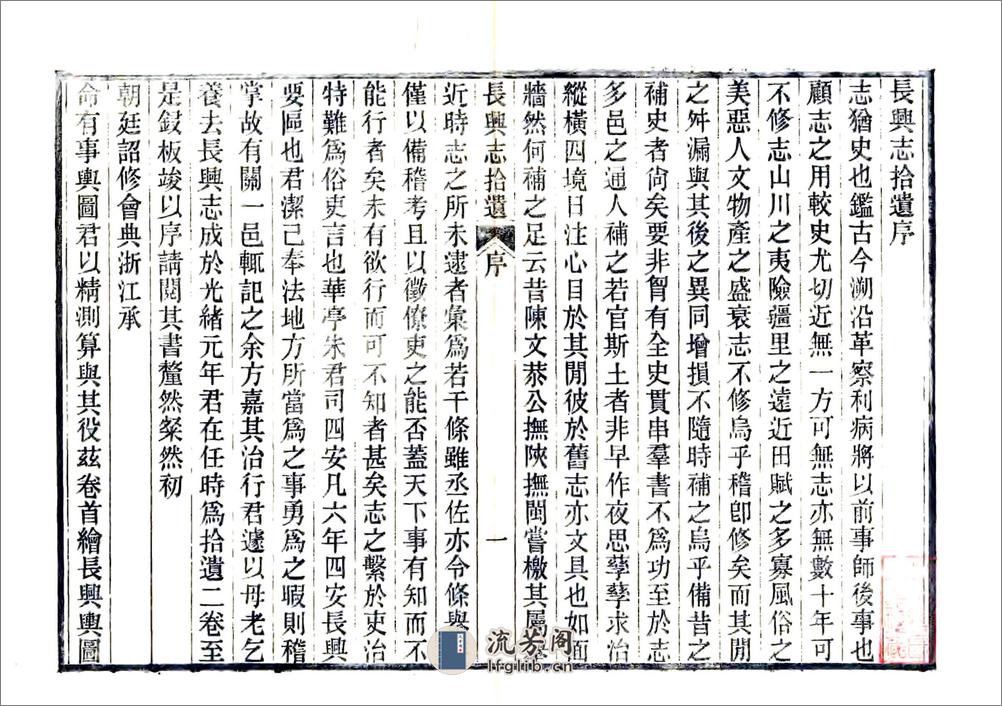 長興志拾遺序
志猶史也鑑古今溯沿革察利病將以前事師後事也
顧志之用較史尤切近無一方可無志亦無數十年可
不修志山川之夷險疆里之遠近田賦之多寡風俗之
美惡人文物產之盛衰志不修烏乎稽卽修矣而其閒
之舛漏與其後之異同增損不隨時補之烏乎備昔之
補史者尙矣要非智有全史貫串羣書不爲功至於志
多邑之通人補之若官斯土者非早作夜思孳孳求治
縱橫四境日注心目於其閒彼於舊志亦文具也如面
牆然何補之足云昔陳文恭公撫陝撫閩嘗檄其屬
長興志拾遺 序 一
近時志之所未逮者彙爲若干條雖丞佐亦令條與
僅以備稽考且以徵僚吏之能否蓋天下事有知而不
能行者矣未有欲行而可不知者甚矣志之繫於吏治
特難爲俗吏言也華亭朱君司四安凡六年四安長興
要區也君潔己奉法地方所當爲之事勇爲之暇則稽
掌故有關一邑輒記之余方嘉其治行君遽以母老乞
養去長興志成於光緒元年君在任時爲拾遺二卷至
是鋟板竣以序請閱其書釐然粲然初
朝廷詔修會典浙江承
命有事輿圖君以精測算與其役茲卷首繪長興輿圖
流芳阁
lfglib.cn